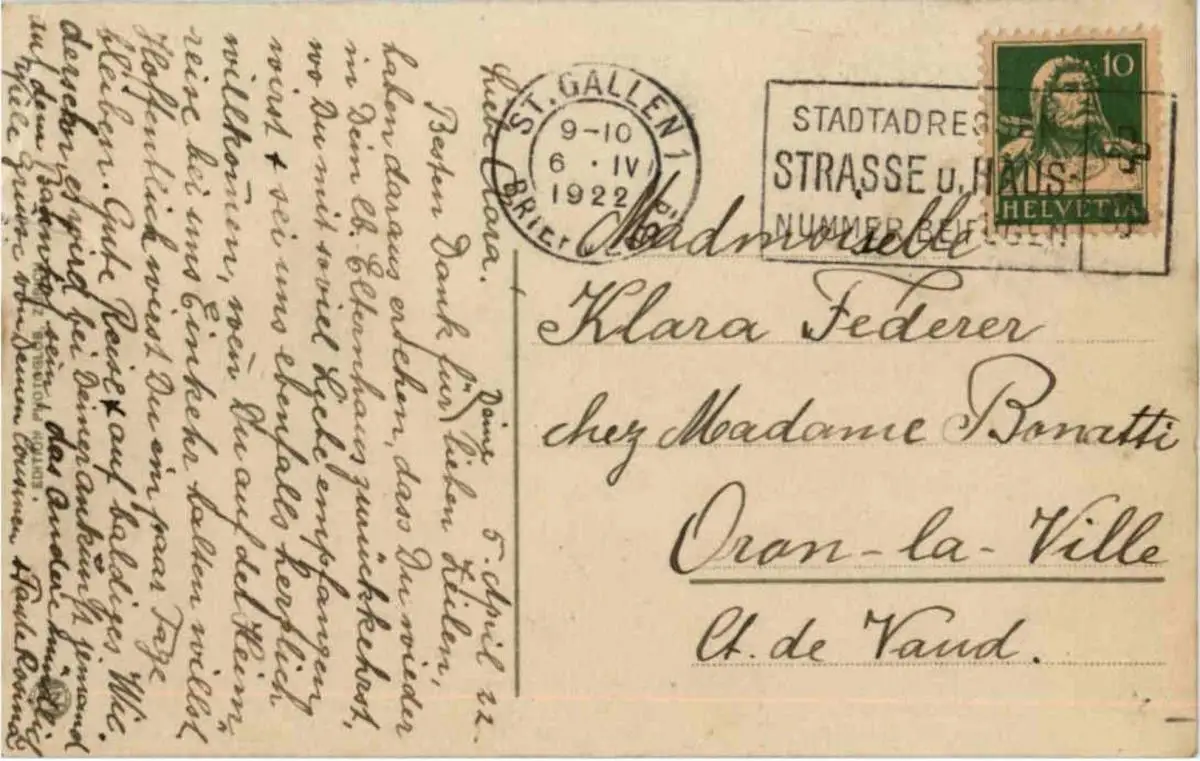 5. April 22.
Liebe Clara.
Besten Dank für Deine lieben Zeilen,
haben daraus ersehen, dass Du wieder
in Dein lb. Elternhaus zurückkehrst,
wo Du mit soviel Liebe empfangen
wirst & sei uns ebenfalls herzlich
willkom̅en, wen̅ Du auf der Heim¬
reise bei uns Einkehr halten willst
Hoffentlich weist Du ein paar Tage
bleiben. Gute Reise & auf baldiges Wie¬
dersehen, es wird bei Deiner ankunft jemand
auf dem Bahnhof sein, das Andere mündlich
viele Grüsse von Deinem Cousinen & Tante
ST. GALLEN 1
9-10
6 · IV
1922
STADTADRES
STRASSE u. HAUS-
NUMMER BEIFÜGEN
10
HELVETIA
Madmoiselle
Klara Federer
chez Madame Bonatti
Oron-la-Ville
Ct. de Vaud.